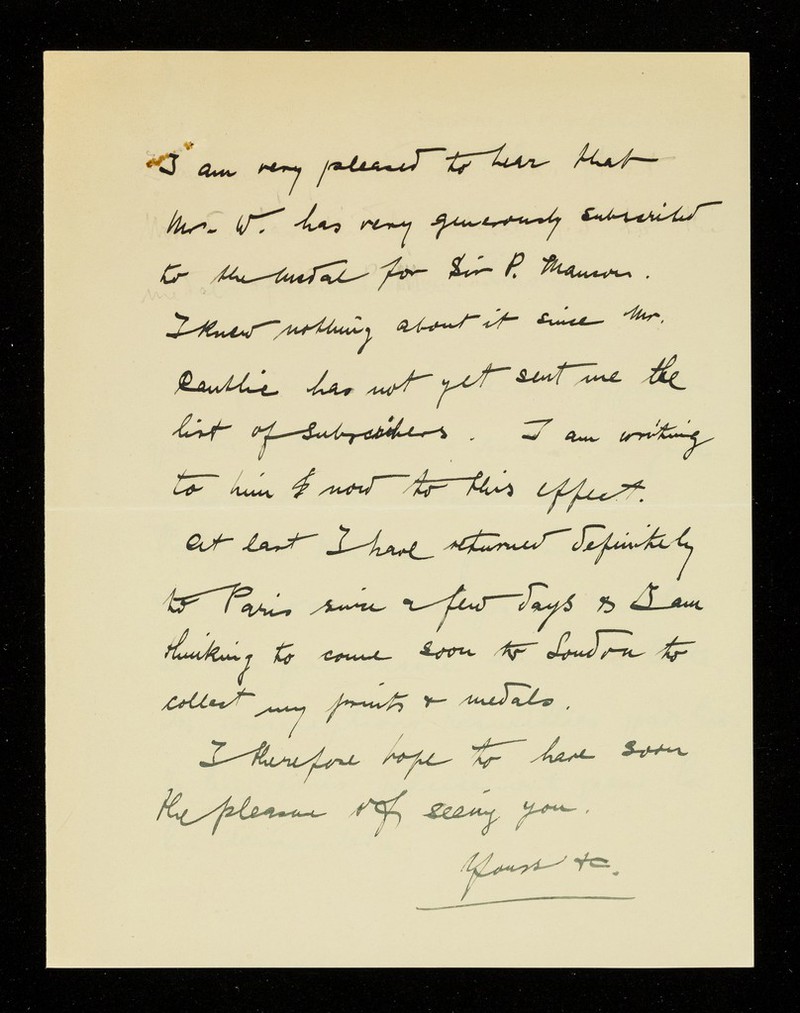 I am very pleased to hear that
Mr. W. has very generously subscribed
to the medal for Sir P. Manson.
I knew nothing about it since Mr.
Cantlie has not yet sent me the
list of subscribers. I am writing
to him now to this effect.
At last I have returned definitely
to Paris since a few days & I am
thinking to come soon to London to
collect my prints & medals.
I therefore hope to have soon
the pleasure of seeing you.
Yours &c.